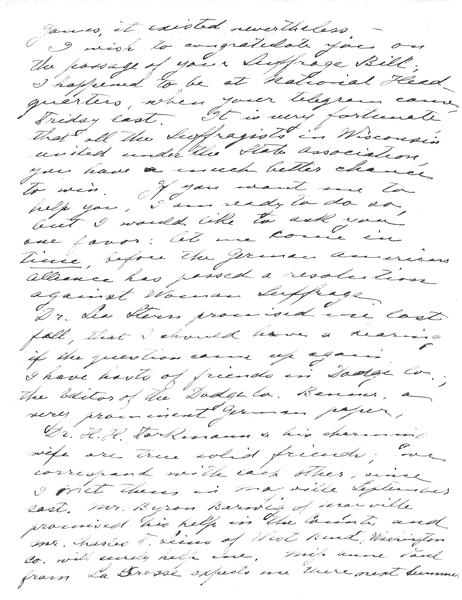 yours, it existed nevertheless —
I wish to congratulate you on
the passage of your Suffrage Bill;
I happened to be at National Head-
quarters, when your telegram came,
Friday last. It is very fortunate
that all the Suffragists in Wisconsin
united under the State association,
you have a much better chance
to win. If you want me to
help you, I am ready to do so,
but I would like to ask you
one favor: let me come in
time, before the German American
Alliance has passed a resolution
against Woman Suffrage.
Dr. Leo Stern promised me last
fall, that I should have a hearing
if the question came up again.
I have hosts of friends in Dodge Co.;
the Editor of the Dodge Co. Banner, a
very prominent German paper,
Dr. H. H. & his charming
wife are true solid friends; we
correspond with each other, since
I met them in Mayville September
last. Mr. Byron Barwig of Mayville
promised his help in the Senate, and
Mr. Charles of West Bend, Washington
Co. will surely help me. Miss Anne
from La Crosse expects me there next Summer